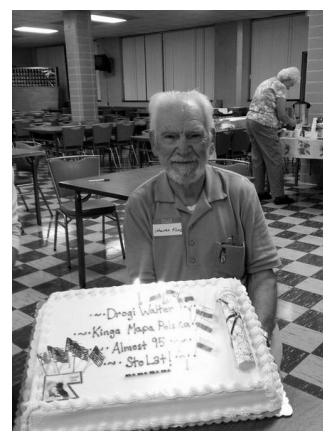 Drogi Walter
Kinga Mapa Polska
Almost 95
Sto Lat!